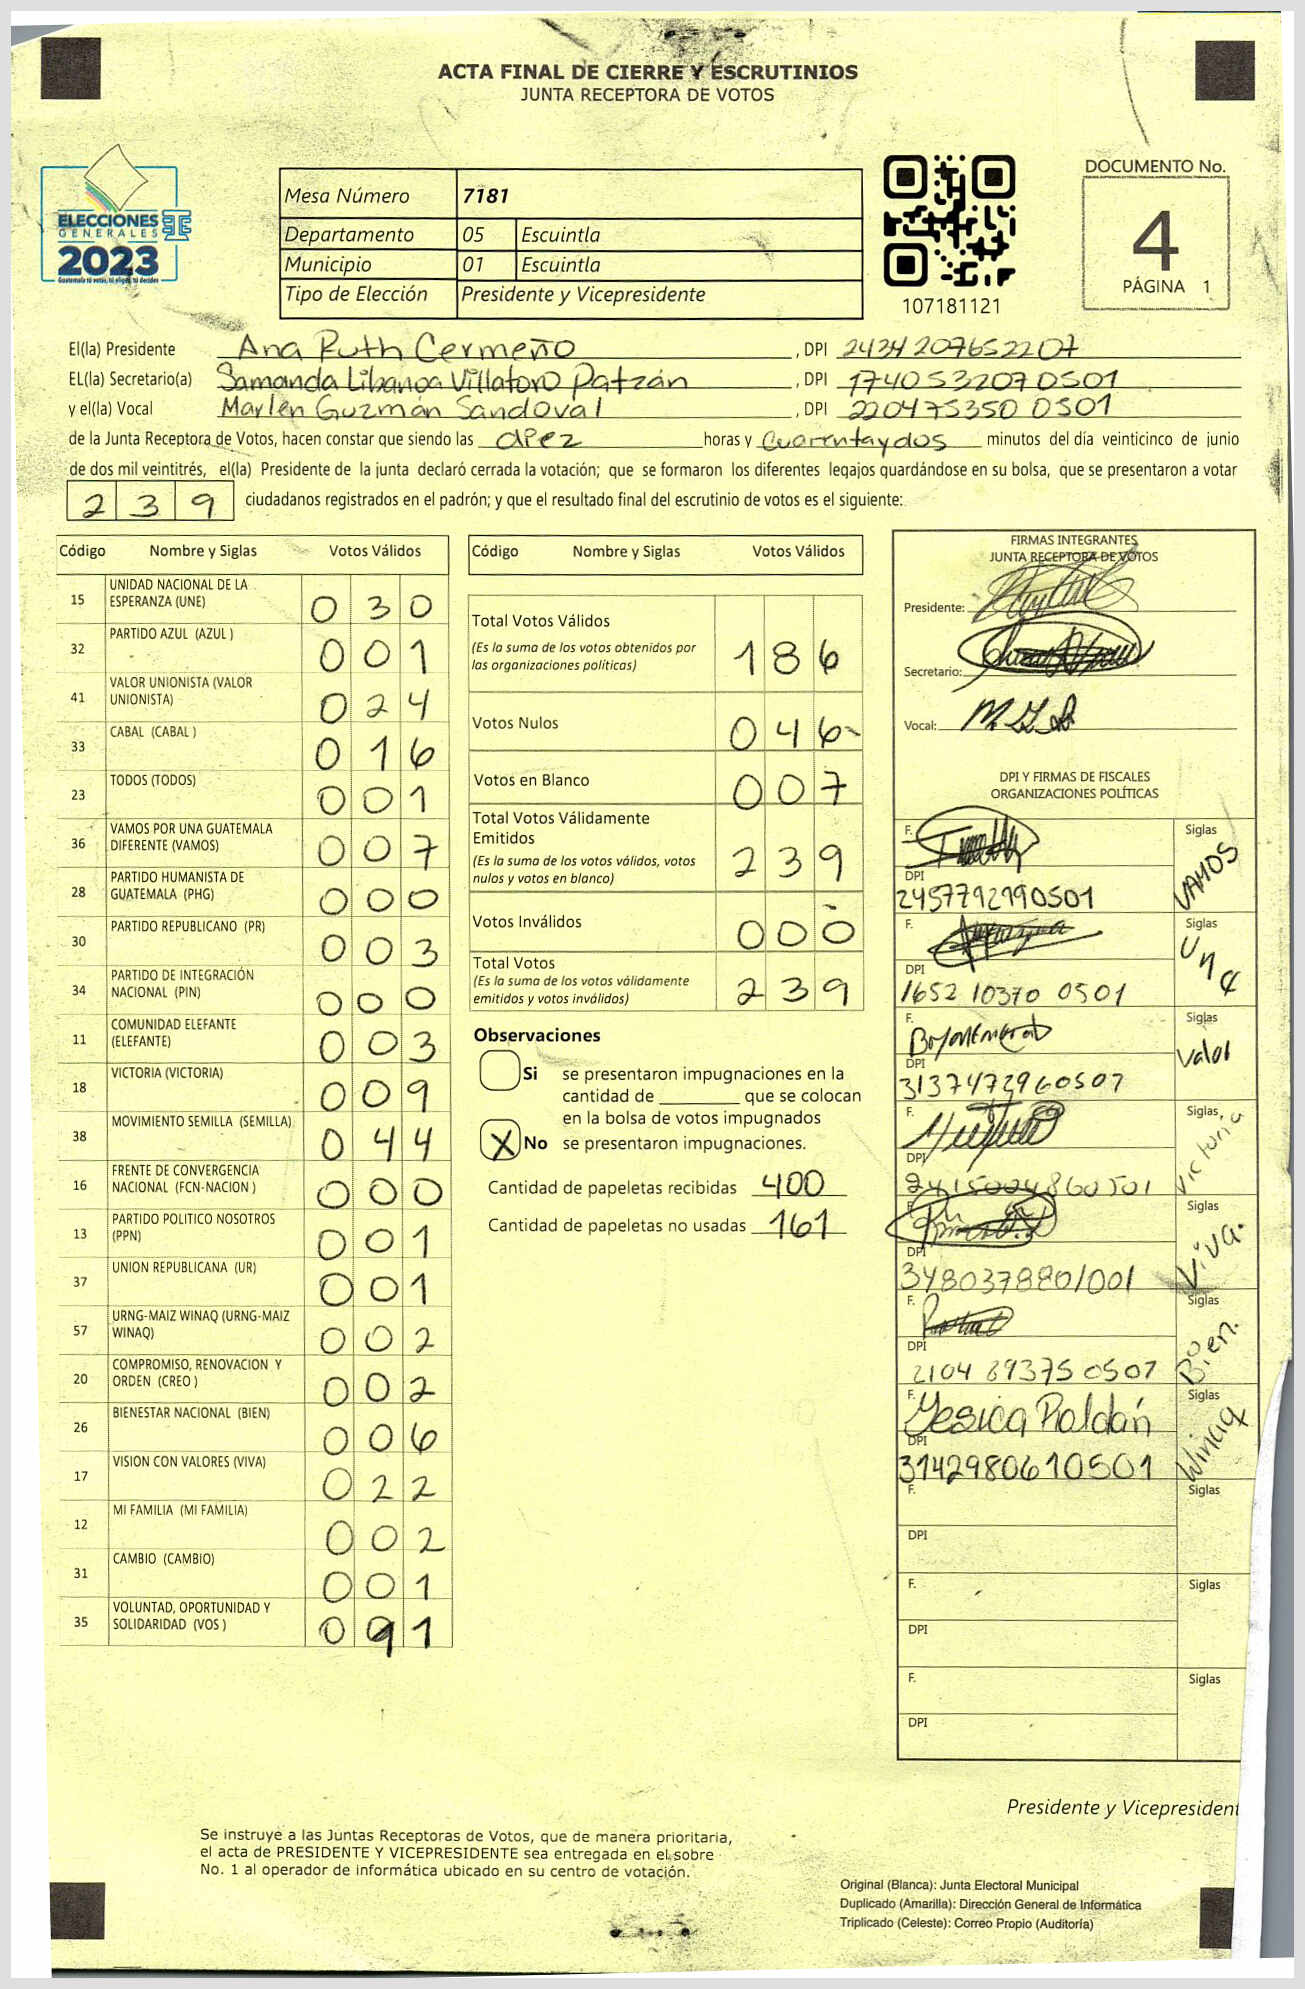 ACTA FINAL DE CIERRE Y ESCRUTINIOS
JUNTA RECEPTORA DE VOTOS
ELECCIONES
GENERALES
2023
Guatemala tú votas, tú eliges, tú decides
Mesa Número 7181
Departamento 05 Escuintla
Municipio 01 Escuintla
Tipo de Elección Presidente y Vicepresidente
107181121
DOCUMENTO No.
4
PÁGINA 1
El(la) Presidente Ana Ruth Cermeño , DPI 2434207652207
EL(la) Secretario(a) Samanda Libanoa Villatoro Patzán , DPI 1740532070501
y el(la) Vocal Marlen Guzmán Sandoval , DPI 2204753500501
de la Junta Receptora de Votos, hacen constar que siendo las diez horas y cuarentaydos minutos del día veinticinco de junio
de dos mil veintitrés, el(la) Presidente de la junta declaró cerrada la votación; que se formaron los diferentes legajos quardándose en su bolsa, que se presentaron a votar
2 3 9 ciudadanos registrados en el padrón; y que el resultado final del escrutinio de votos es el siguiente:
Código Nombre y Siglas Votos Válidos
15 UNIDAD NACIONAL DE LA ESPERANZA (UNE) 0 3 0
32 PARTIDO AZUL (AZUL ) 0 0 1
41 VALOR UNIONISTA (VALOR UNIONISTA) 0 2 4
33 CABAL (CABAL ) 0 1 6
23 TODOS (TODOS) 0 0 1
36 VAMOS POR UNA GUATEMALA DIFERENTE (VAMOS) 0 0 7
28 PARTIDO HUMANISTA DE GUATEMALA (PHG) 0 0 0
30 PARTIDO REPUBLICANO (PR) 0 0 3
34 PARTIDO DE INTEGRACIÓN NACIONAL (PIN) 0 0 0
11 COMUNIDAD ELEFANTE (ELEFANTE) 0 0 3
18 VICTORIA (VICTORIA) 0 0 9
38 MOVIMIENTO SEMILLA (SEMILLA) 0 4 4
16 FRENTE DE CONVERGENCIA NACIONAL (FCN-NACION ) 0 0 0
13 PARTIDO POLITICO NOSOTROS (PPN) 0 0 1
37 UNION REPUBLICANA (UR) 0 0 1
57 URNG-MAIZ WINAQ (URNG-MAIZ WINAQ) 0 0 2
20 COMPROMISO, RENOVACION Y ORDEN (CREO ) 0 0 2
26 BIENESTAR NACIONAL (BIEN) 0 0 6
17 VISION CON VALORES (VIVA) 0 2 2
12 MI FAMILIA (MI FAMILIA) 0 0 2
31 CAMBIO (CAMBIO) 0 0 1
35 VOLUNTAD, OPORTUNIDAD Y SOLIDARIDAD (VOS ) 0 1
Código Nombre y Siglas Votos Válidos
Total Votos Válidos 1 8 6
(Es la suma de los votos obtenidos por
las organizaciones políticas)
Votos Nulos 0 4 6
Votos en Blanco 0 0 7
Total Votos Válidamente
Emitidos 2 3 9
(Es la suma de los votos válidos, votos
nulos y votos en blanco)
Votos Inválidos 0 0 0
Total Votos 2 3 9
(Es la suma de los votos válidamente
emitidos y votos inválidos)
Observaciones
Si se presentaron impugnaciones en la
cantidad de ________ que se colocan
en la bolsa de votos impugnados
X No se presentaron impugnaciones.
Cantidad de papeletas recibidas 400
Cantidad de papeletas no usadas 161
FIRMAS INTEGRANTES
JUNTA RECEPTORA DE VOTOS
Presidente:
Secretario:
Vocal: M. G. S.
DPI Y FIRMAS DE FISCALES
ORGANIZACIONES POLÍTICAS
F. Siglas VAMOS
DPI
2457792790501
F. Siglas Une
DPI
1652 10370 0501
F. Siglas Valor
DPI
3137472960507
F. Siglas Victoria
DPI
2415004860501
F. Siglas Viva.
DPI
3480378801001
F. Siglas Bien.
DPI
2104 89375 0507
F. Yesica Roldán Siglas Winaq
DPI
3142980610501
F. Siglas
DPI
F. Siglas
DPI
F. Siglas
DPI
Presidente y Vicepresident
Se instruye a las Juntas Receptoras de Votos, que de manera prioritaria,
el acta de PRESIDENTE Y VICEPRESIDENTE sea entregada en el sobre
No. 1 al operador de informática ubicado en su centro de votación.
Original (Blanca): Junta Electoral Municipal
Duplicado (Amarilla): Dirección General de Informática
Triplicado (Celeste): Correo Propio (Auditoría)